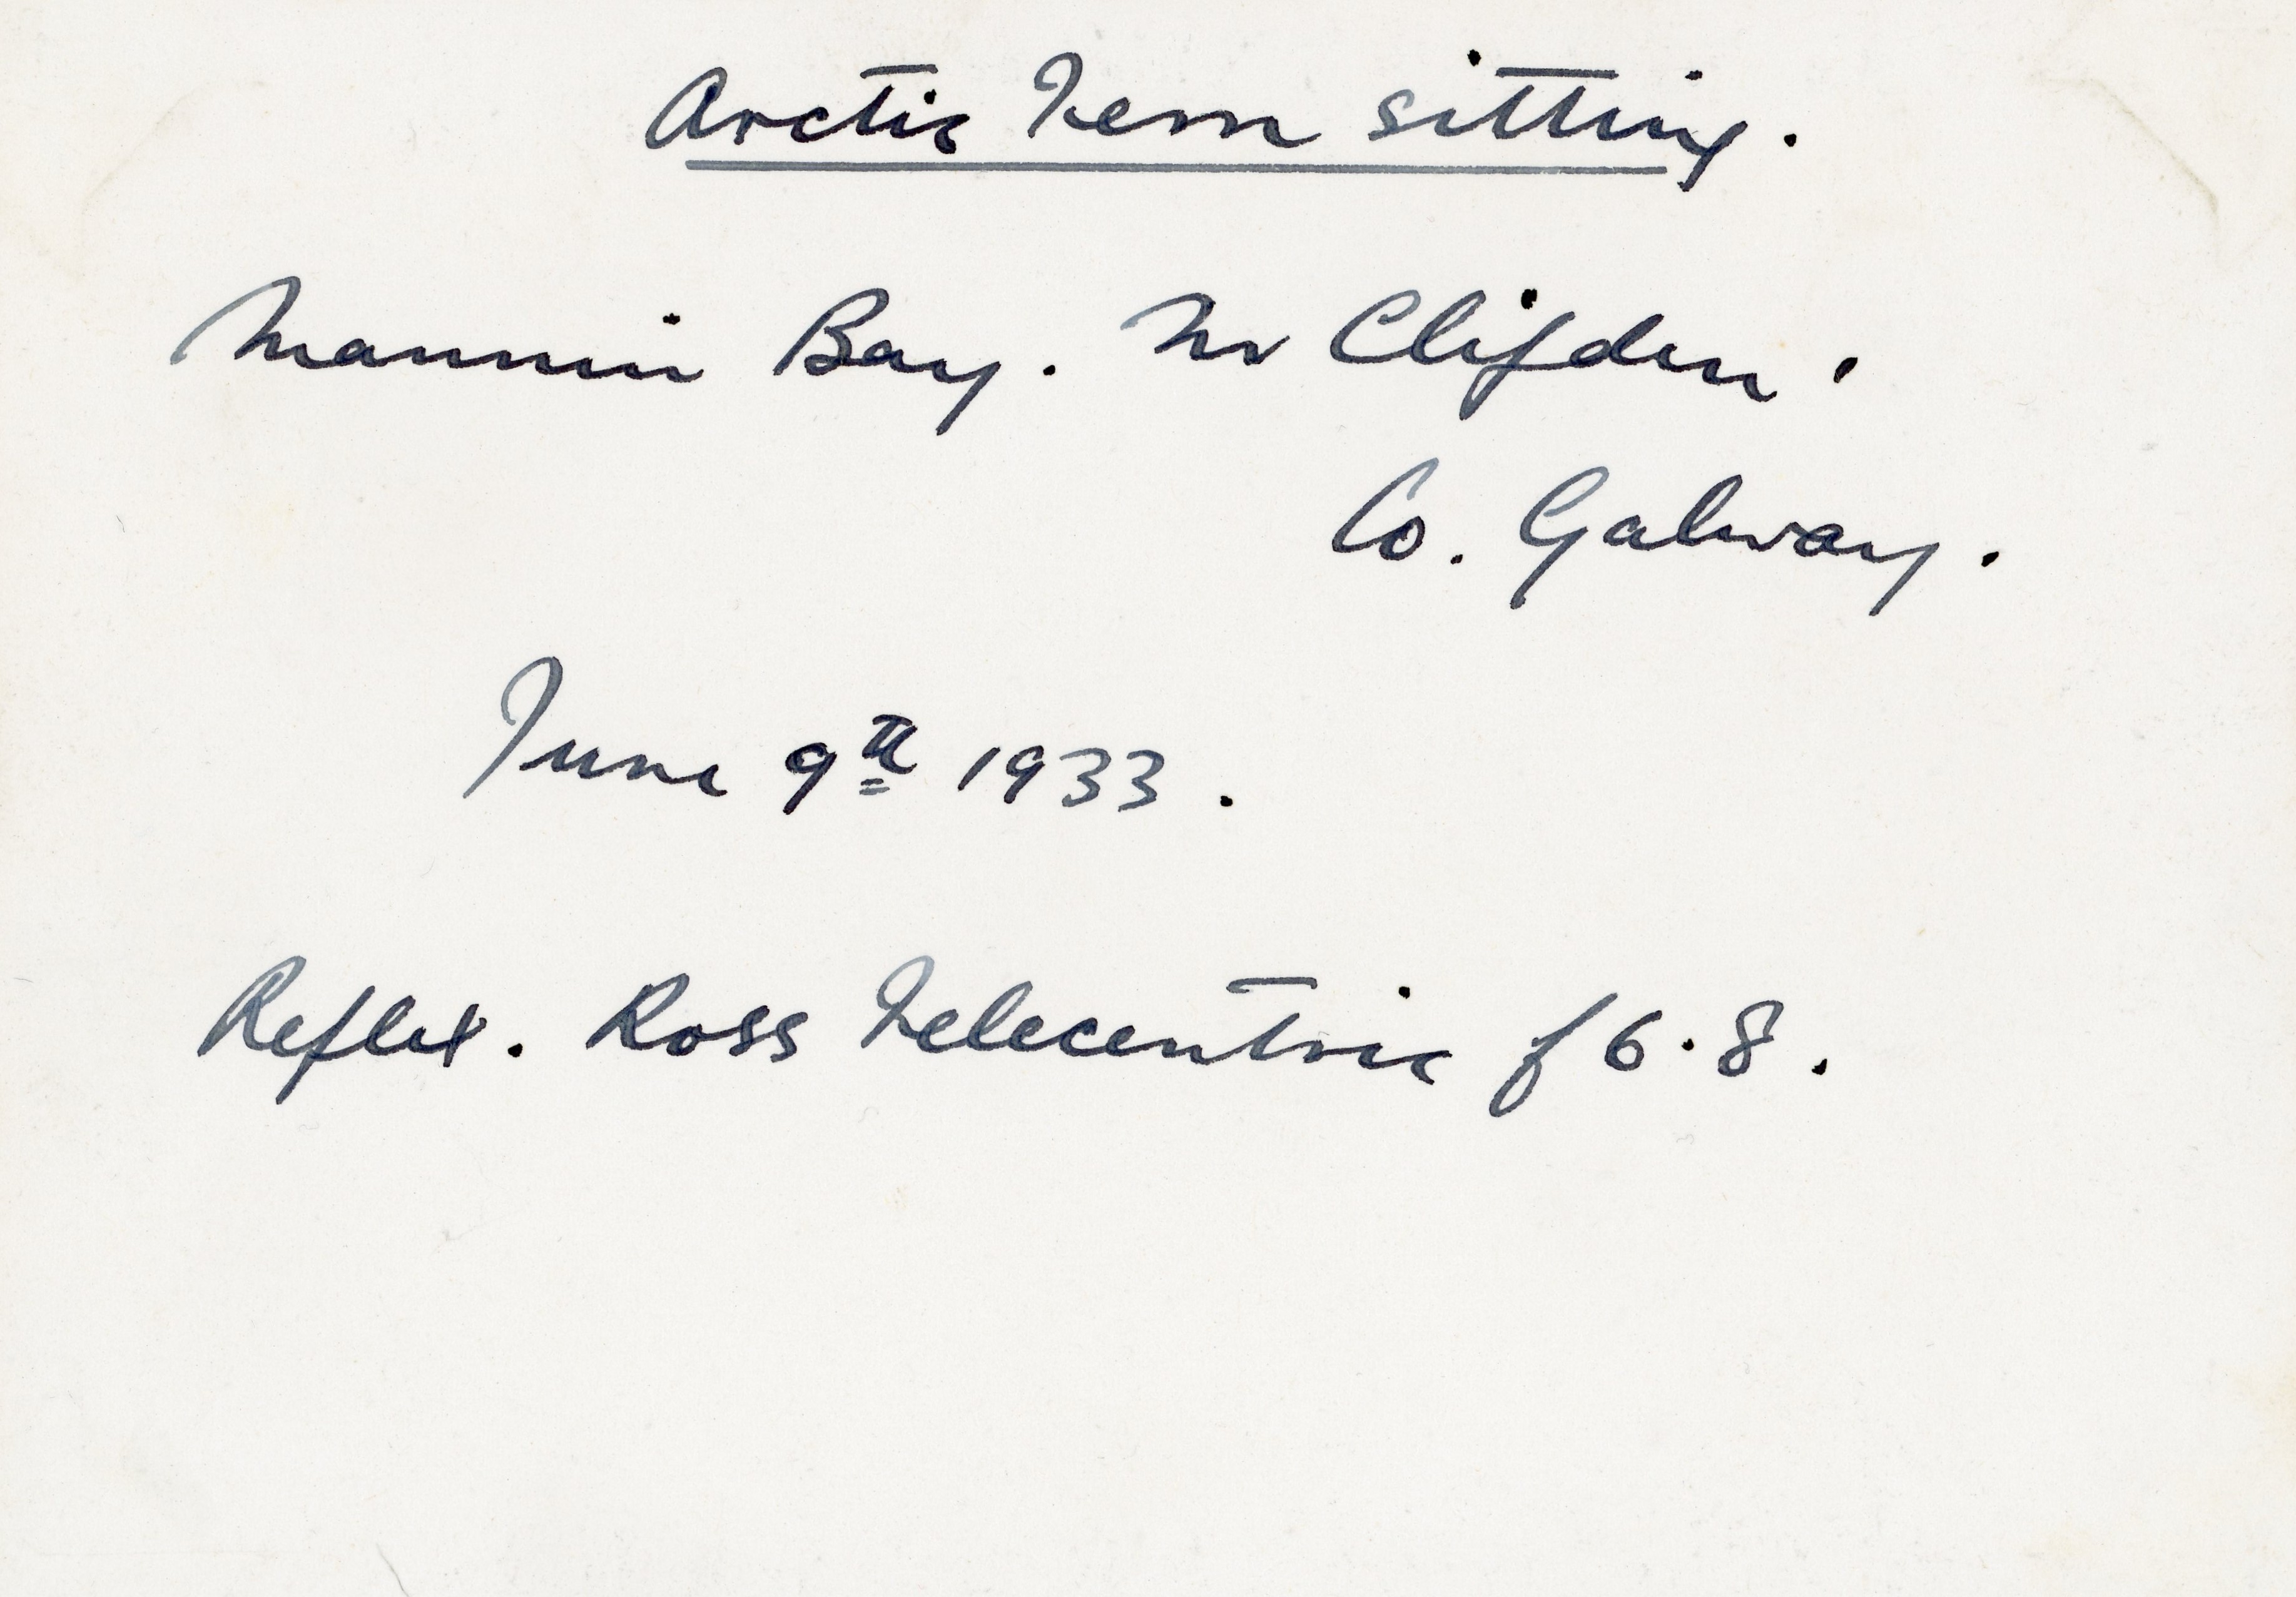 Arctic Tern sitting.
Mannin Bay. Nr Clifden.
Co. Galway.
June 9th 1933.
Reflex. Ross Telecentric f6.8.